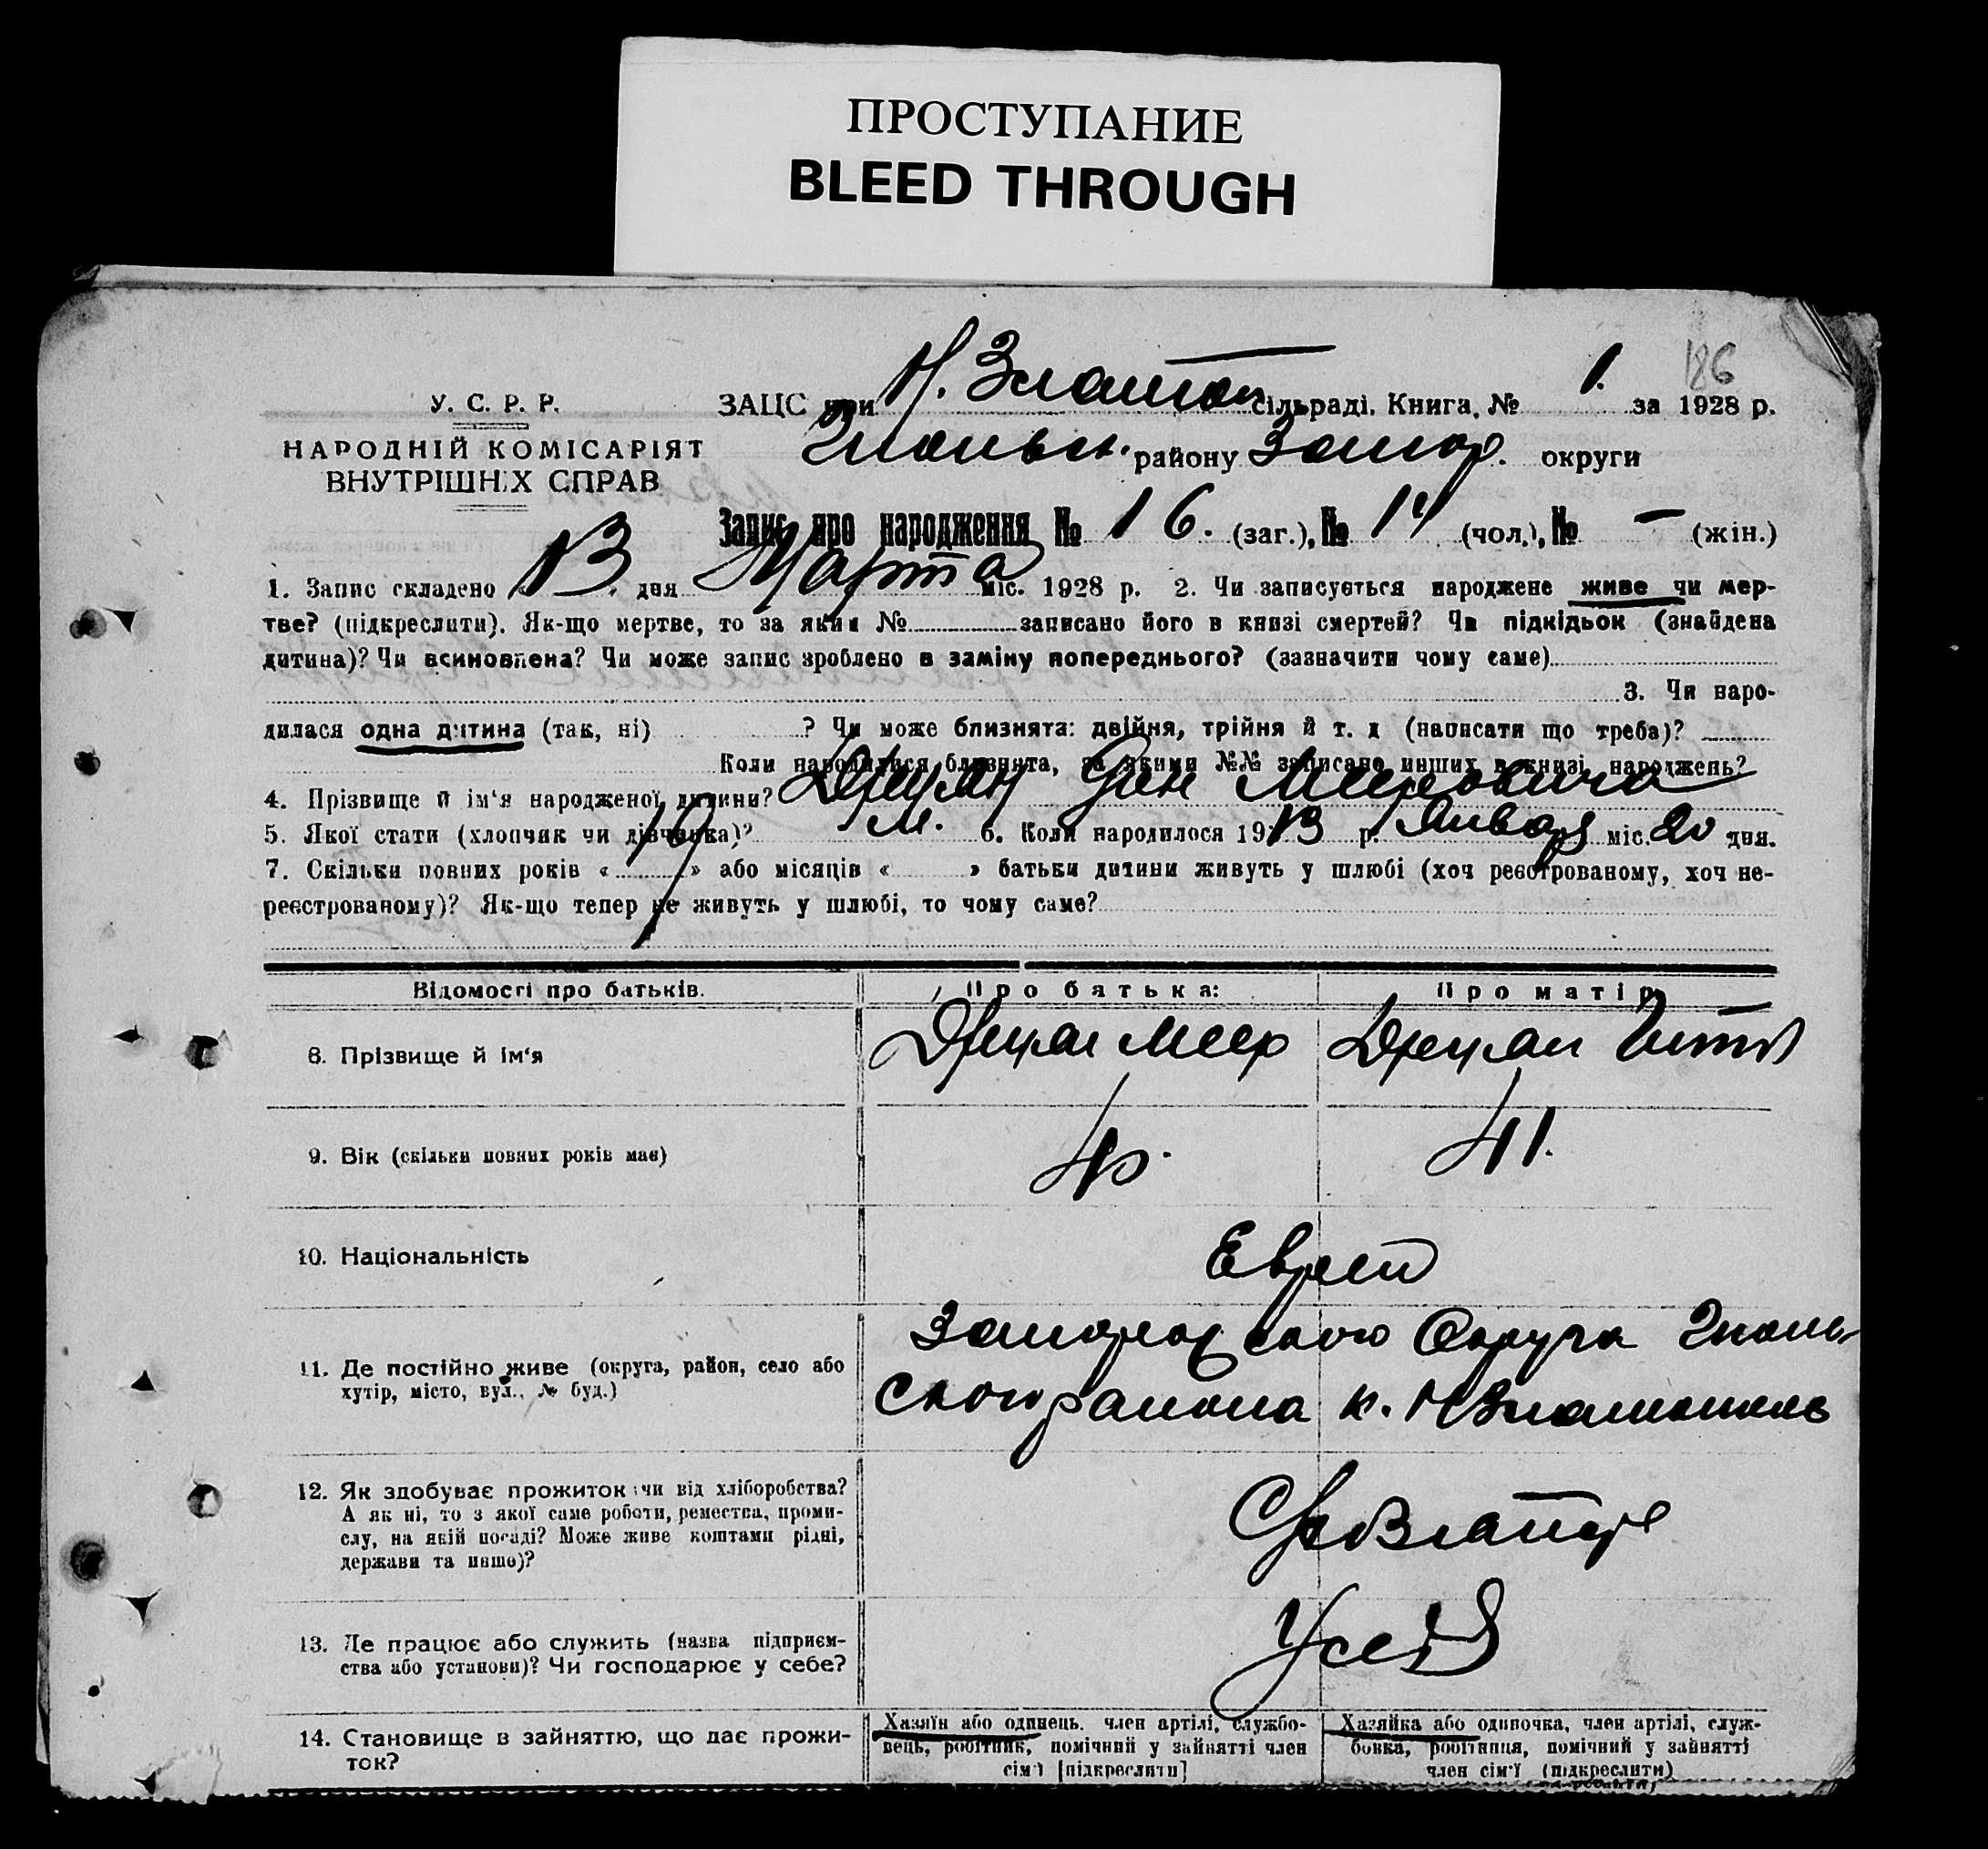 ПРОСТУПАНИЕ
BLEED THROUGH
186
У. С. Р. Р.
НАРОДНІЙ КОМІСАРІЯТ
ВНУТРІШНІХ СПРАВ
ЗАЦС при Н. Златоп сільраді. Книга, № 1. за 1928 р.
району Запор. округи
Запис про народження № 16. (заг.), № 14 (чол.), № — (жін.)
1. Запис складено 13 дня Марта міс. 1928 р. 2. Чи записується народжене живе чи мер-
тве? (підкреслити). Як-що мертве, то за яким № записано його в книзі смертей? Чи підкідьок (знайдена
дитина)? Чи всиновлена? Чи може запис зроблено в заміну попереднього? (зазначити чому саме)
3. Чи наро-
дилася одна дитина (так, ні) ? Чи може близнята: двійня, трійня й т. д (написати що треба)?
Коли народилися близнята, за якими №№ записано инших в книзі народжень?
4. Прізвище й ім'я народженої дитини?
5. Якої стати (хлопчик чи дівчинка)? м. 6. Коли народилося 1913 р. Январ міс. 20 дня.
7. Скільки повних років « 19 » або місяців « » батьки дитини живуть у шлюбі (хоч реєстрованому, хоч не-
реєстрованому)? Як-що тепер не живуть у шлюбі, то чому саме?
Відомості про батьків. Про батька: Про матір
8. Прізвище й ім'я Меер
9. Вік (скільки повних років має) 40. 41.
10. Національність Евреи
11. Де постійно живе (округа, район, село або
хутір, місто, вул., № буд.)
Округа
ского района к. НЗлатополь
12. Як здобуває прожиток чи від хліборобства?
А як ні, то з якої саме роботи, ремества, проми-
слу, на якій посаді? Може живе коштами рідні,
держави та инше)?
13. Де працює або служить (назва підприєм-
ства або установи)? Чи господарює у себе?
У себя
14. Становище в зайняттю, що дає прожи-
ток?
Хазяїн або одинець, член артілі, службо-
вець, робітник, помічний у зайнятті член
сім'ї [підкреслити]
Хазяйка або одиночка, член артілі, служ-
бовка, робітниця, помічний у зайнятті
член сім'ї (підкреслити)